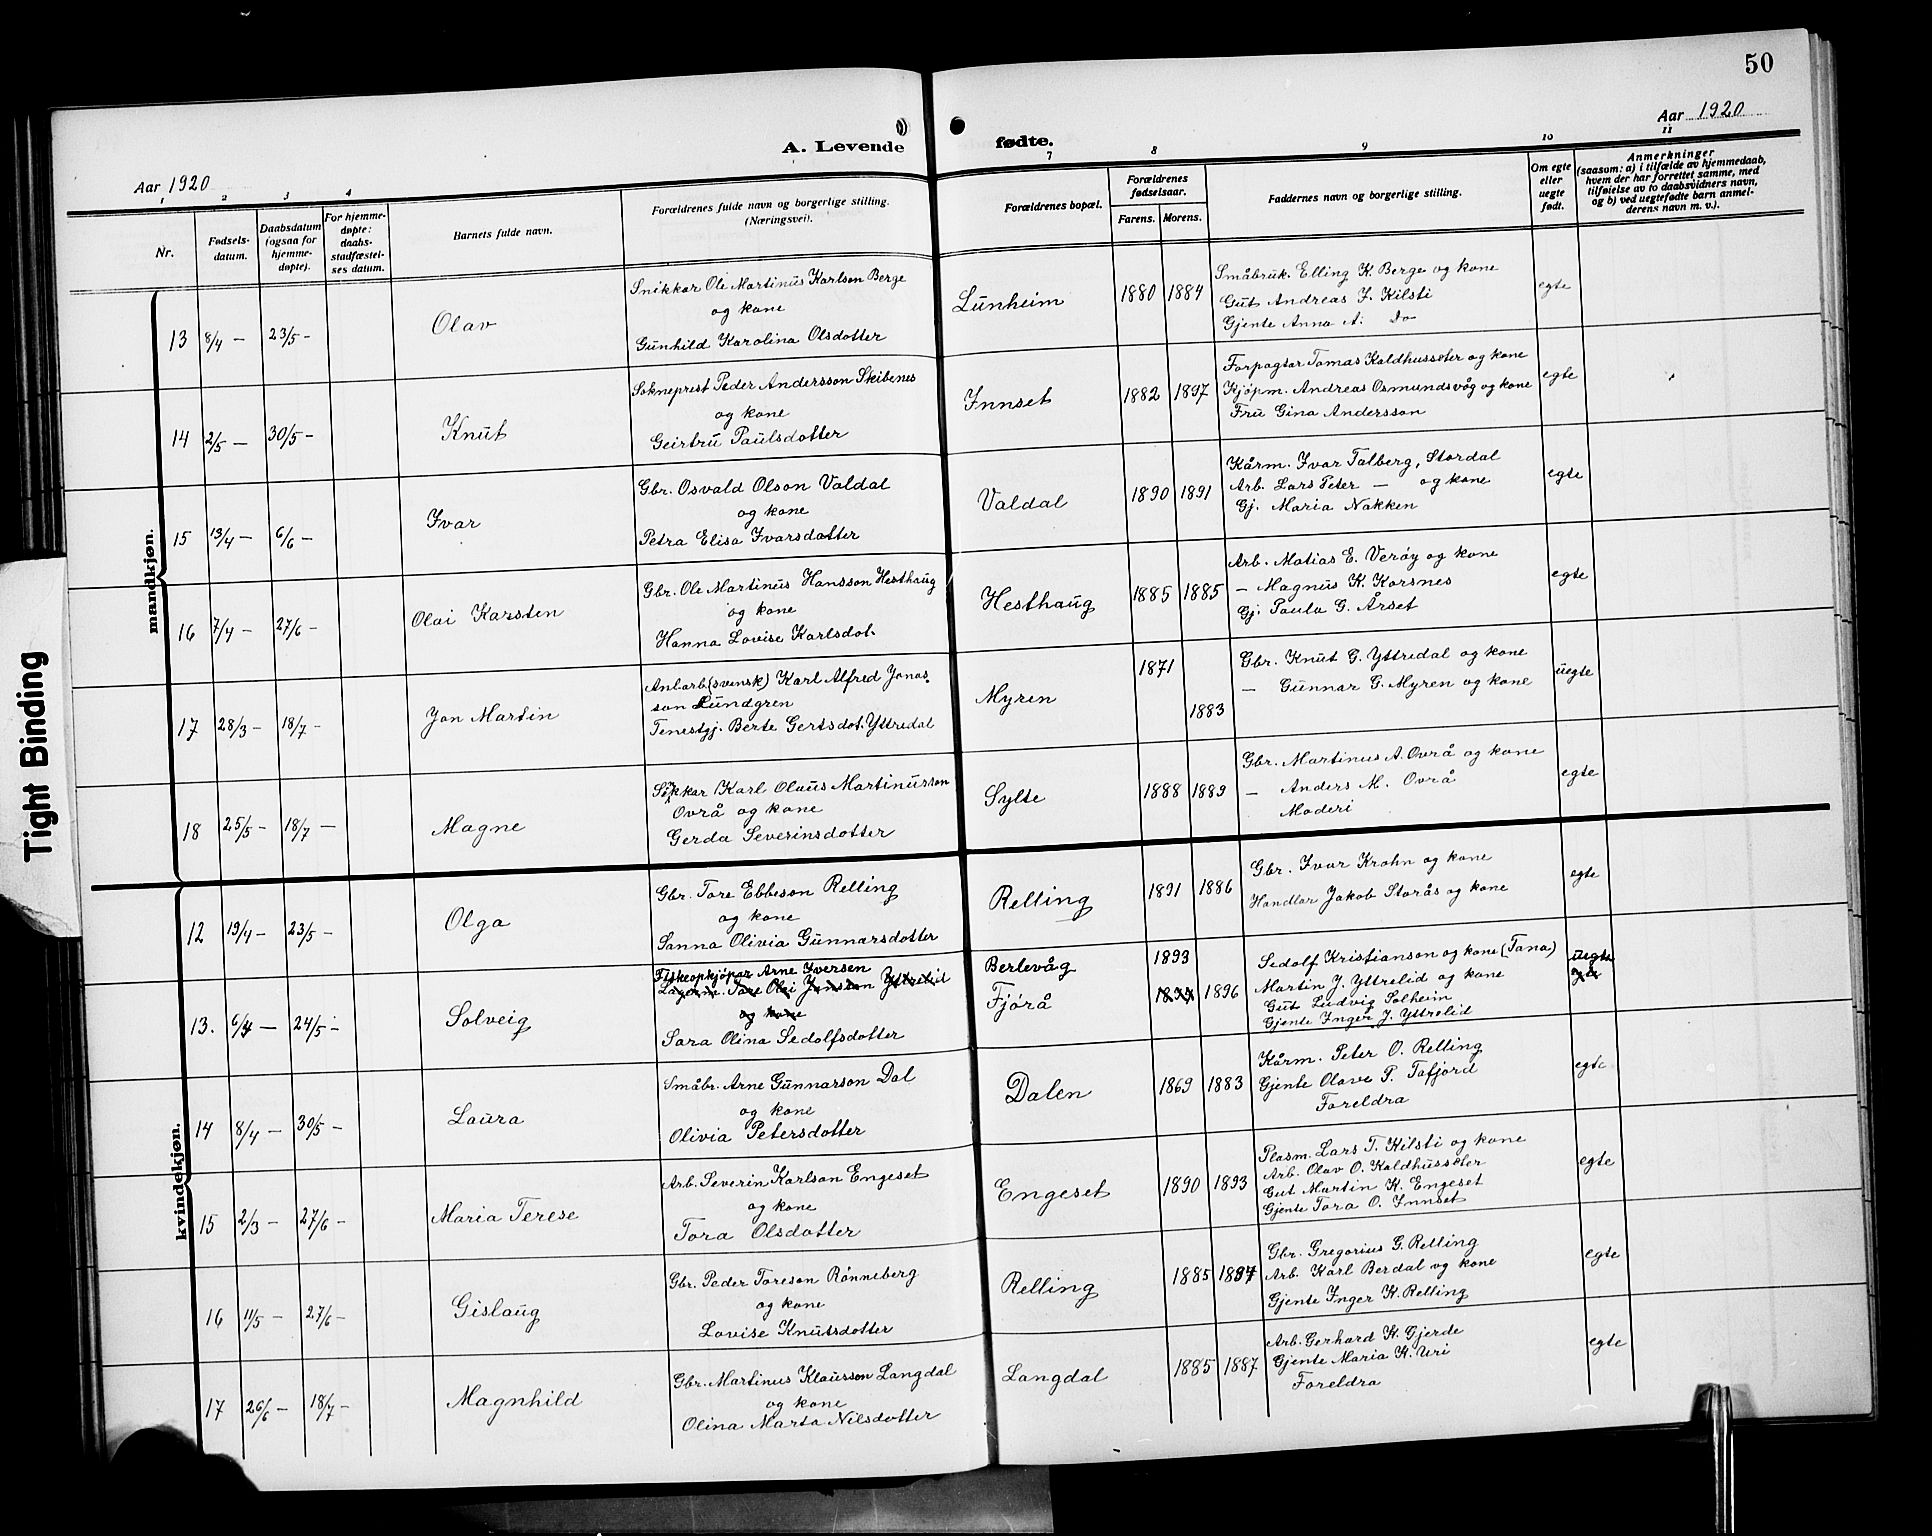 50
Aar 1920
A. Levende fødte.
Aar 1920
1 2 3 4 7 8 9 10 11
Nr.
Fødsels-
datum.
Daabsdatum
(ogsaa for
hjemme-
døpte).
For hjemme-
døpte:
daabs-
stadfæstel-
ses datum.
Barnets fulde navn.
Forældrenes fulde navn og borgerlige stilling.
(Næringsvei).
Forældrenes bopæl.
Forældrenes
fødselsaar.
Farens. Morens.
Faddernes navn og borgerlige stilling.
Om egte
eller
uegte
født.
Anmerkninger
(saasom: a) i tilfælde av hjemmedaab,
hvem der har forrettet samme, med
tilføielse av to daabsvidners navn,
og b) ved uegtefødte barn anmel-
derens navn m. v.).
mandkjøn.
13 8/4 – 23/5 – Olav
Snikkar Ole Martinus Karlson Berge
og kone
Gunhild Karolina Olsdotter
Lunheim 1880 1884
Småbruk. Elling K. Berge og kone
Gut Andreas J. Kilsti
Gjente Anna A. Do
egte
14 2/5 – 30/5 – Knut
Sokneprest Peder Andersson Skibenes
og kone
Geirtru Paulsdotter
Innset 1882 1897
Forpagtar Tomas Kaldhusseter og kone
Kjøpm. Andreas Osmundsvåg og kone
Fru Gina Andersson
egte
15 13/4 – 6/6 – Ivar
Gbr. Osvald Olson Valdal
og kone
Petra Elisa Ivarsdotter
Valdal 1890 1891
Kårm. Ivar Talberg, Stordal
Arb. Lars Peter – og kone
Gj. Maria Nakken
egte
16 7/4 – 27/6 – Olai Karsten
Gbr. Ole Martinus Hansson Hesthaug
og kone
Hanna Lovise Karlsdot.
Hesthaug 1885 1885
Arb. Matias E. Verøy og kone
– Magnus K. Korsnes
Gj. Paula G. Årset
egte
17 28/3 – 18/7 – Jon Martin
Anl.arb. (svensk) Karl Alfred Jonas-
son Lundgren
Tenestgj. Berte Gertsdot. Yttredal
Myren 1871 1883
Gbr. Knut G. Yttredal og kone
– Gunnar G. Myren og kone
uegte
18 25/5 – 18/7 – Magne
Karl Olaus Martinusson
Ovrå og kone
Gerda Severinsdotter
Sylte 1888 1889
Gbr. Martinus A. Ovrå og kone
– Anders M. Ovrå
Moderi
egte
kvindekjøn.
12 19/4 – 23/5 – Olga
Gbr. Tore Ebbeson Relling
og kone
Sanna Olivia Gunnarsdotter
Relling 1891 1886
Gbr. Ivar Krohn og kone
Handlar Jakob Storås og kone
egte
13. 6/4 – 24/5 – Solveig
Fiskeopkjøpar Arne Iversen
Tore Olai Jonsson Yttrelid
og kone
Sara Olina Sedolfsdotter
Berlevåg
Fjørå
1893
1896
Sedolf Kristianson og kone (Tana)
Martin J. Yttrelid og kone
Gut Ludvig Solheim
Gjente Inger J. Yttrelid
uegte
egte
14 8/4 – 30/5 – Laura
Småbr. Arne Gunnarson Dal
og kone
Olivia Petersdotter
Dalen 1869 1883
Kårm. Peter O. Relling
Gjente Olave P. Tafjord
Foreldra
egte
15 2/3 – 27/6 – Maria Terese
Arb. Severin Karlson Engeset
og kone
Tora Olsdotter
Engeset 1890 1893
Plasm. Lars T. Kilsti og kone
Arb. Olav O. Kaldhusseter
Gut Martin K. Engeset
Gjente Tora O. Innset
egte
16 11/5 – 27/6 – Gislaug
Gbr. Peder Toreson Rønneberg
og kone
Lovise Knutsdotter
Relling 1885 1897
Gbr. Gregorius G. Relling
Arb. Karl Berdal og kone
Gjente Inger K. Relling
egte
17 26/6 – 18/7 – Magnhild
Gbr. Martinus Klausson Langdal
og kone
Olina Marta Nilsdotter
Langdal 1885 1887
Arb. Gerhard K. Gjerde
Gjente Maria K. Uri
Foreldra
egte
Tight Binding